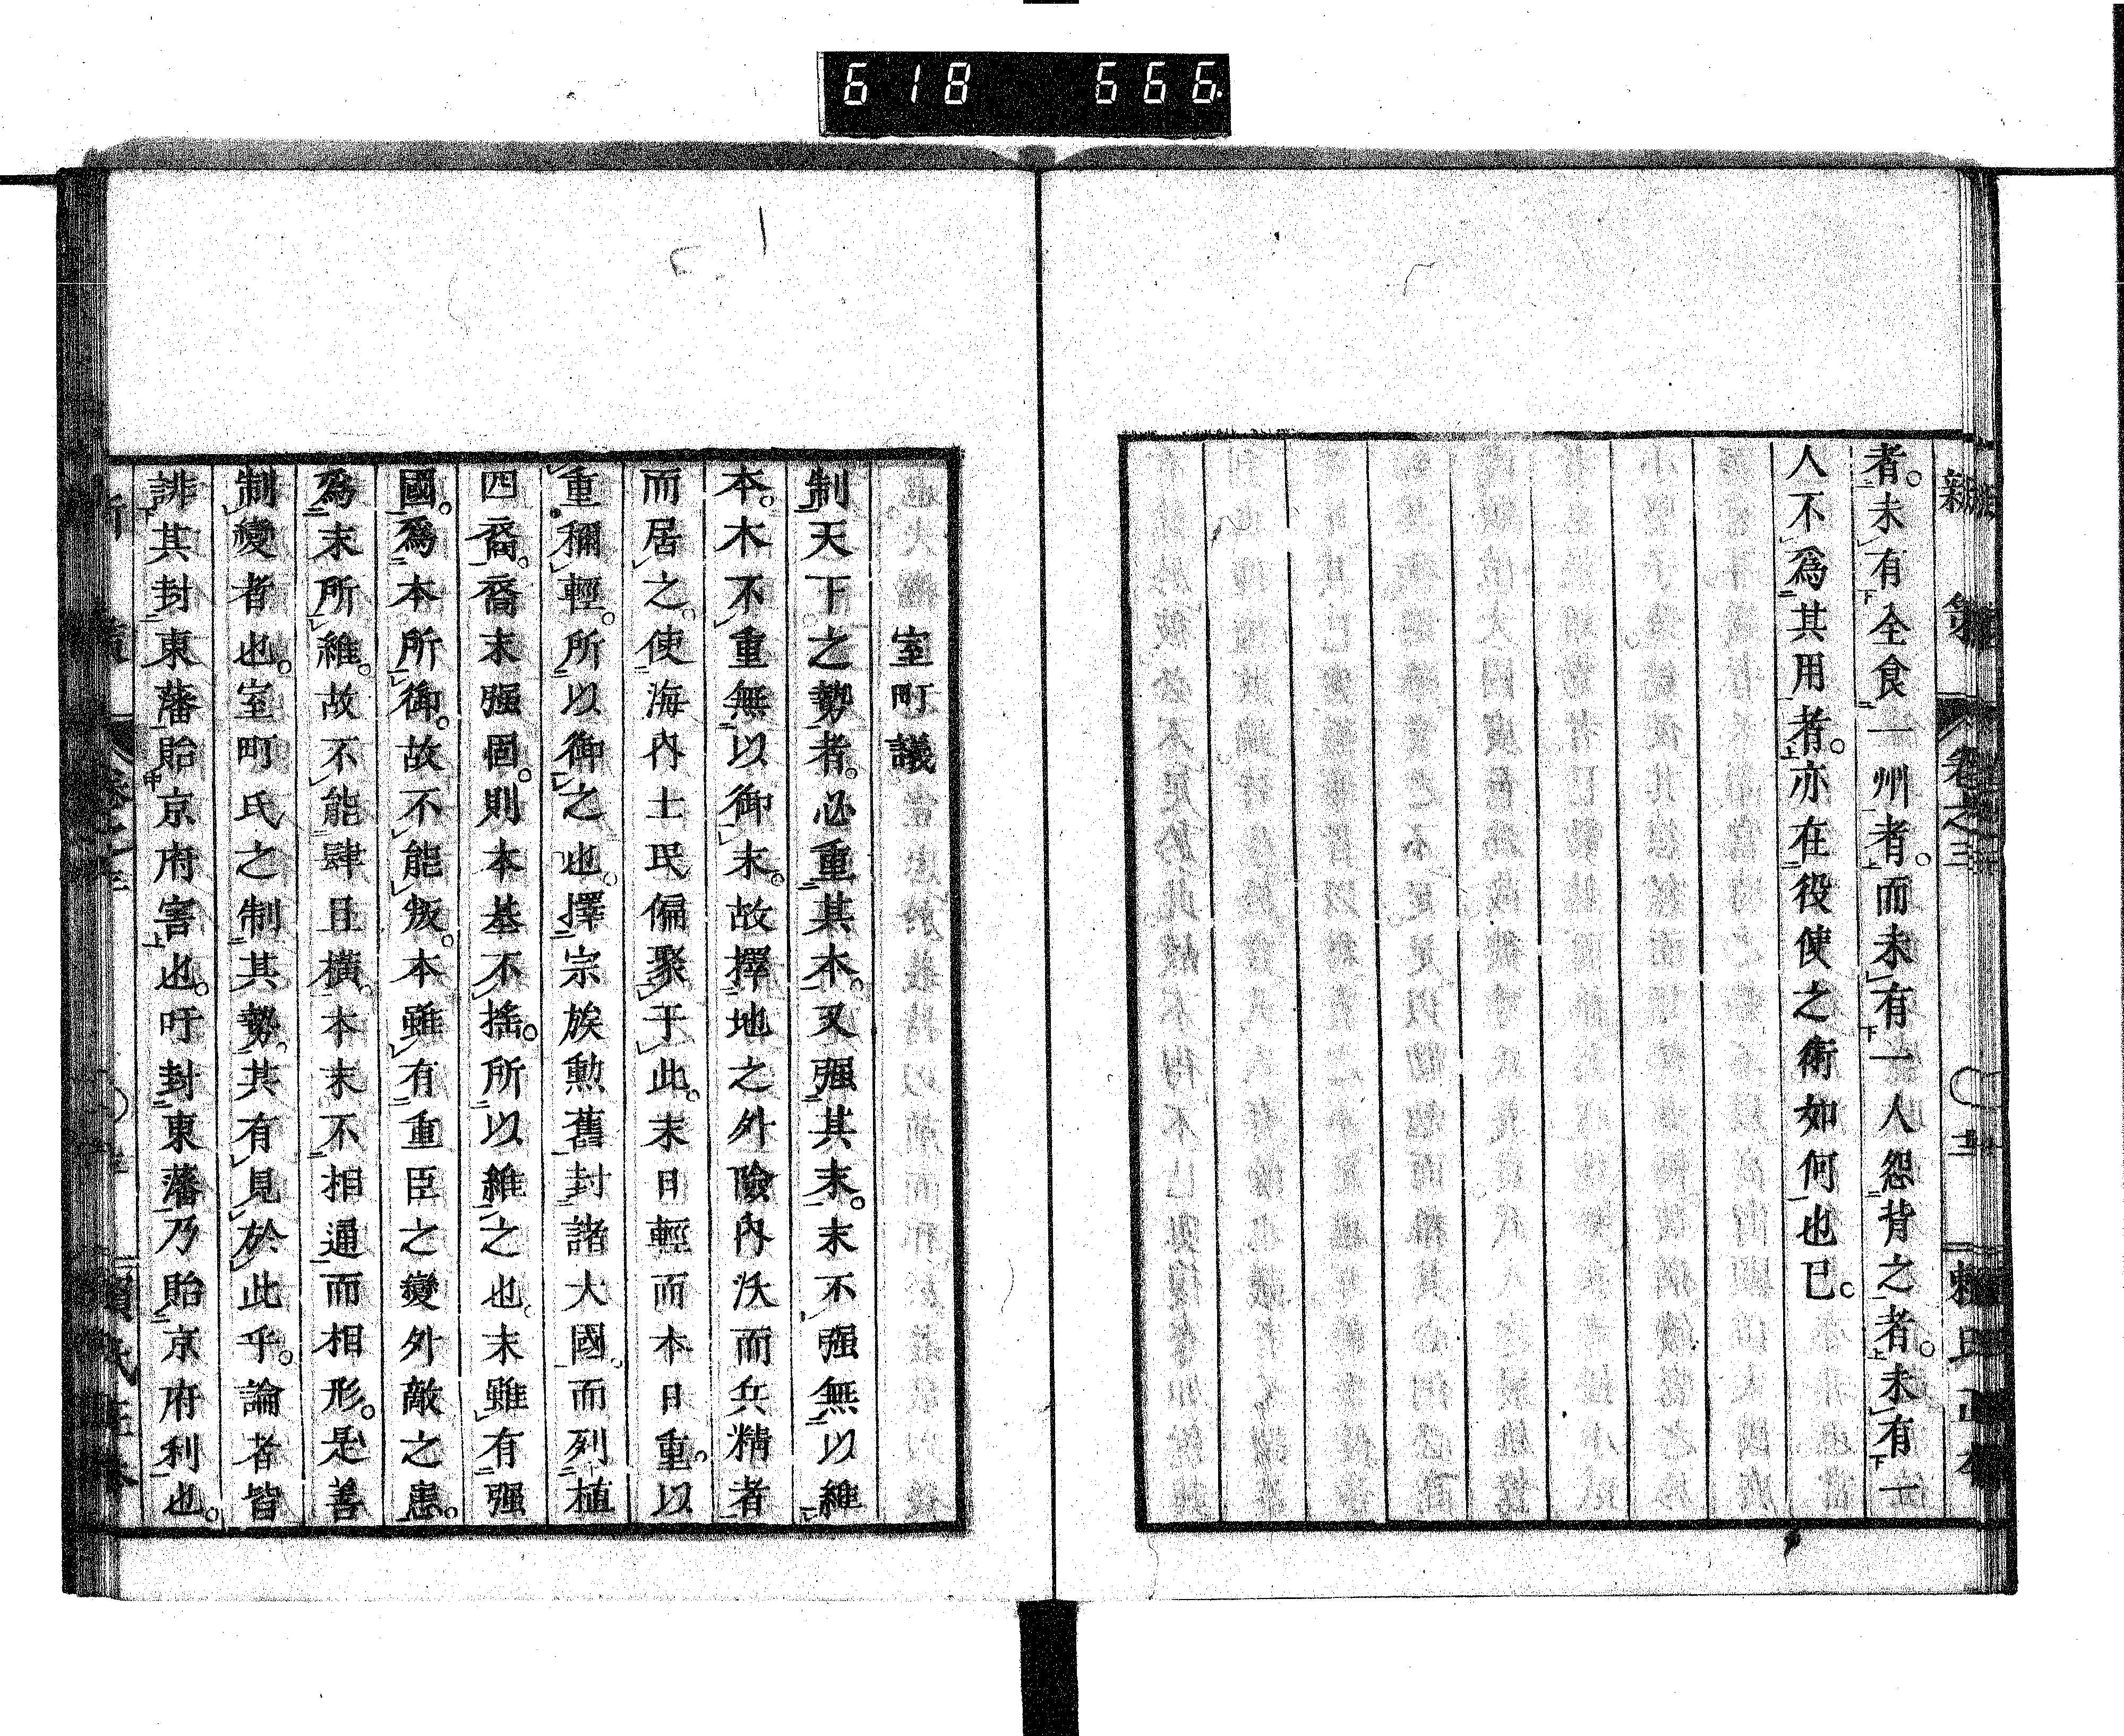 618 666
新策 卷之三
者。未有全食一州者。而未有一人怨背之者。未有一
人不爲其用者。亦在役使之術如何也已。
室町議
制天下之勢者。必重其本。又强其末。末不强無以維
本。本不重無以御末。故擇地之外險內沃而兵精者
而居之。使海內士民偏聚于此。末日輕而本日重。以
重禰輕。所以御之也。擇宗族勳舊封諸大國。而列植
四裔。裔末强固。則本基不搖。所以維之也。末雖有强
國。爲本所御。故不能叛。本雖有重臣之變外敵之患。
爲末所維。故不能肆且橫。本末不相通而相形。是善
制變者也。室町氏之制其勢。其有見於此乎。論者皆
誹其封東藩貽京府害也。吁封東藩乃貽京府利也。